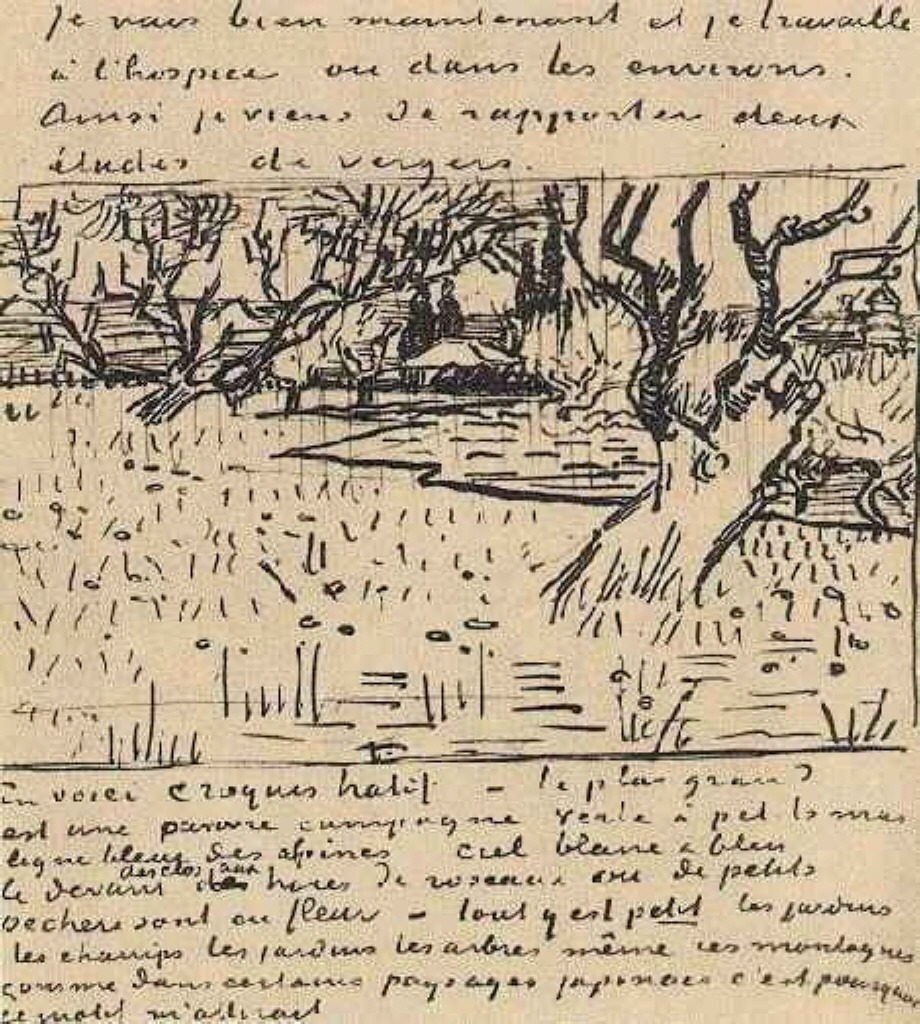 je vais bien maintenant et je travaille
à l'hospice ou dans les environs.
Ainsi je viens de rapporter deux
études de vergers.
En voici croquis hatif – le plus grand
est une pauvre campagne verte à petits mas
ligne bleue des alpines ciel blanc & bleu
le devant des clos aux haies de roseaux où de petits
pechers sont en fleur – tout y est petit les jardins
les champs les jardins les arbres même ces montagnes
comme dans certains paysages japonais c'est pourquoi
ce motif m'attirait